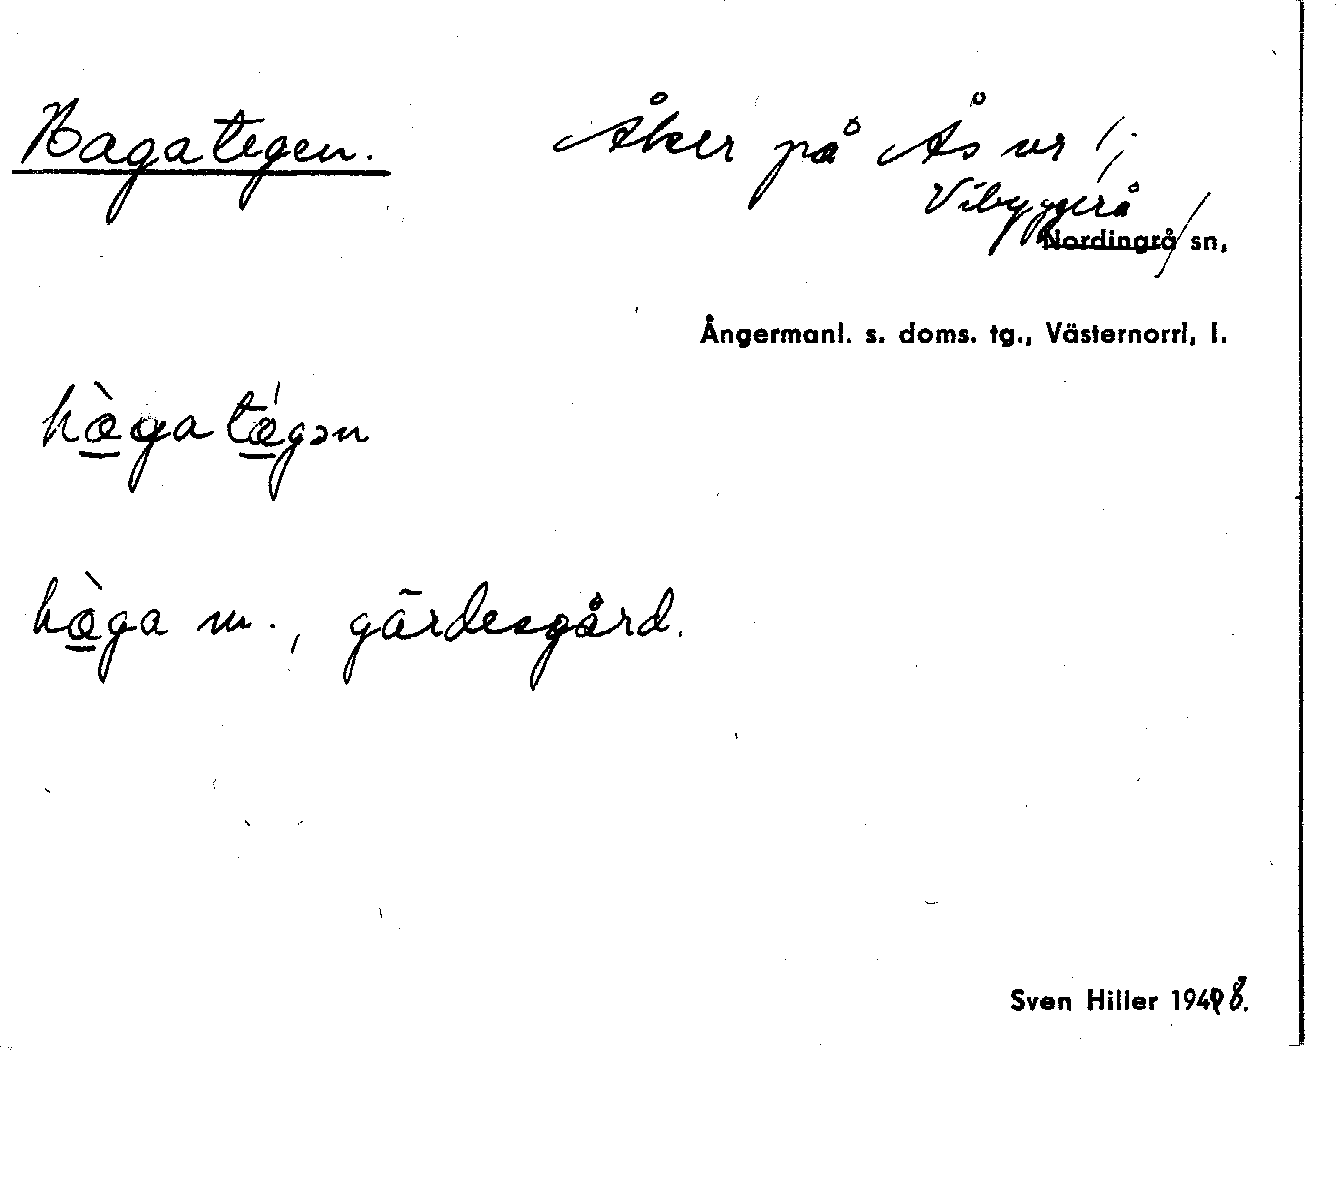 Hagategen. Åker på Ås vr 1/1;
Vibyggerå
Nordingrå/ sn,
Ångermanl. s. doms. tg., Västernorrl, l.
hàga tágən
hàga m., gärdesgård.
Sven Hiller 1948.